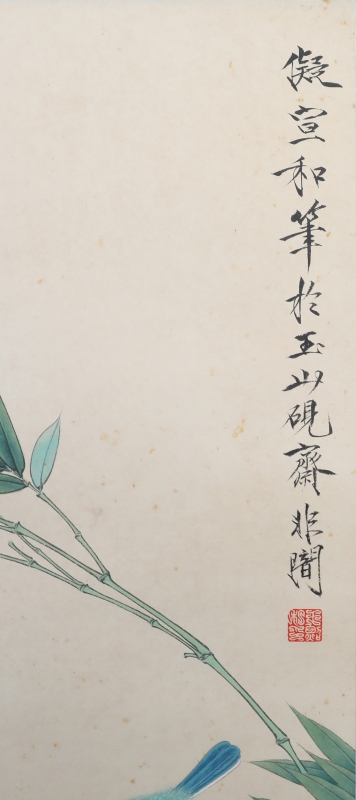 儗宣和筆於玉山硯齋非闇